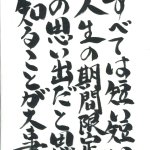 すべては短い
人生の期間限定
の思い出だと思
知ることが大事